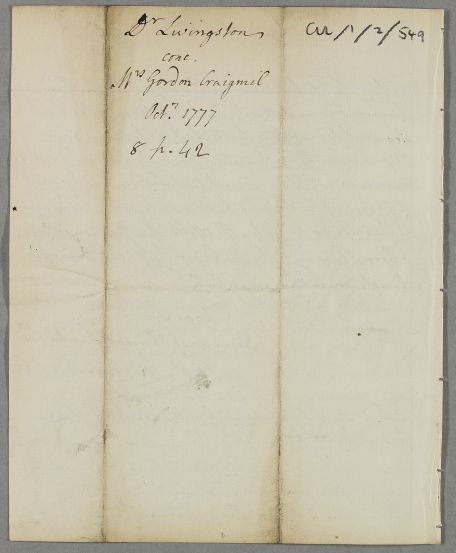 Dr Livingston
CUL/1/2/549
conc.
Mrs Gordon Craigmil
Octr. 1777
8 p. 42